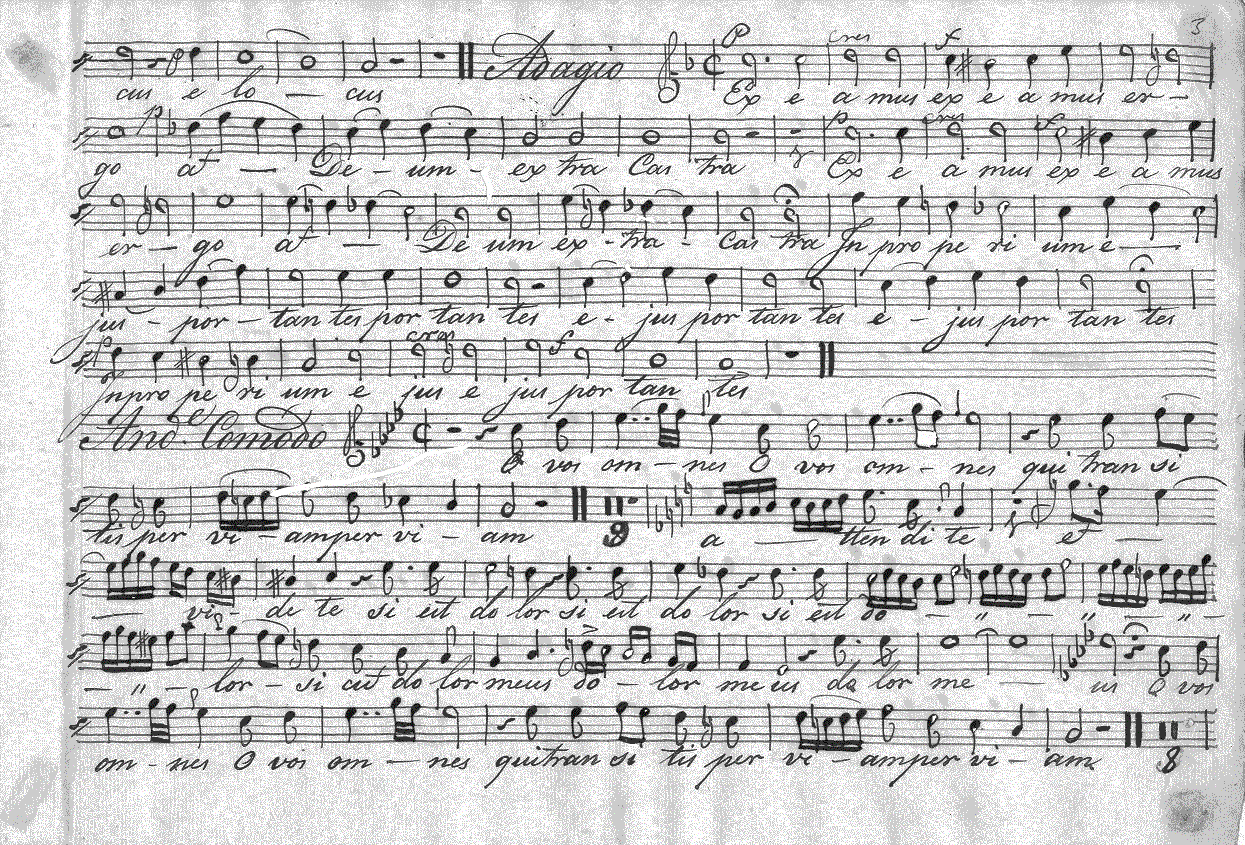 3
P cres f
Adagio
cus e lo — cus Ex e a mus ex e a mus er —
p p cres sf
go at — De - um - ex tra Cas tra Ex e a mus ex e a mus
er — go at — De um ex - tra - Cas tra In pro pe ri um e —
jus - por - tan tes por tan tes e - jus por tan tes e - jus por tan tes
p cres f
Inpro pe ri um e jus e jus por tan tes
And.e Comodo
O vos om - nes O vos om - nes qui tran si
tis per vi - amper vi - am 9 a — tten di te et —
— vi - de te si est do lor si est do lor si est do — " — " —
— " — lor - si est do lor meus do - lor me us do lor me — us O vos
om - nes O vos om - nes quitran si tis per vi - amper vi - am
8